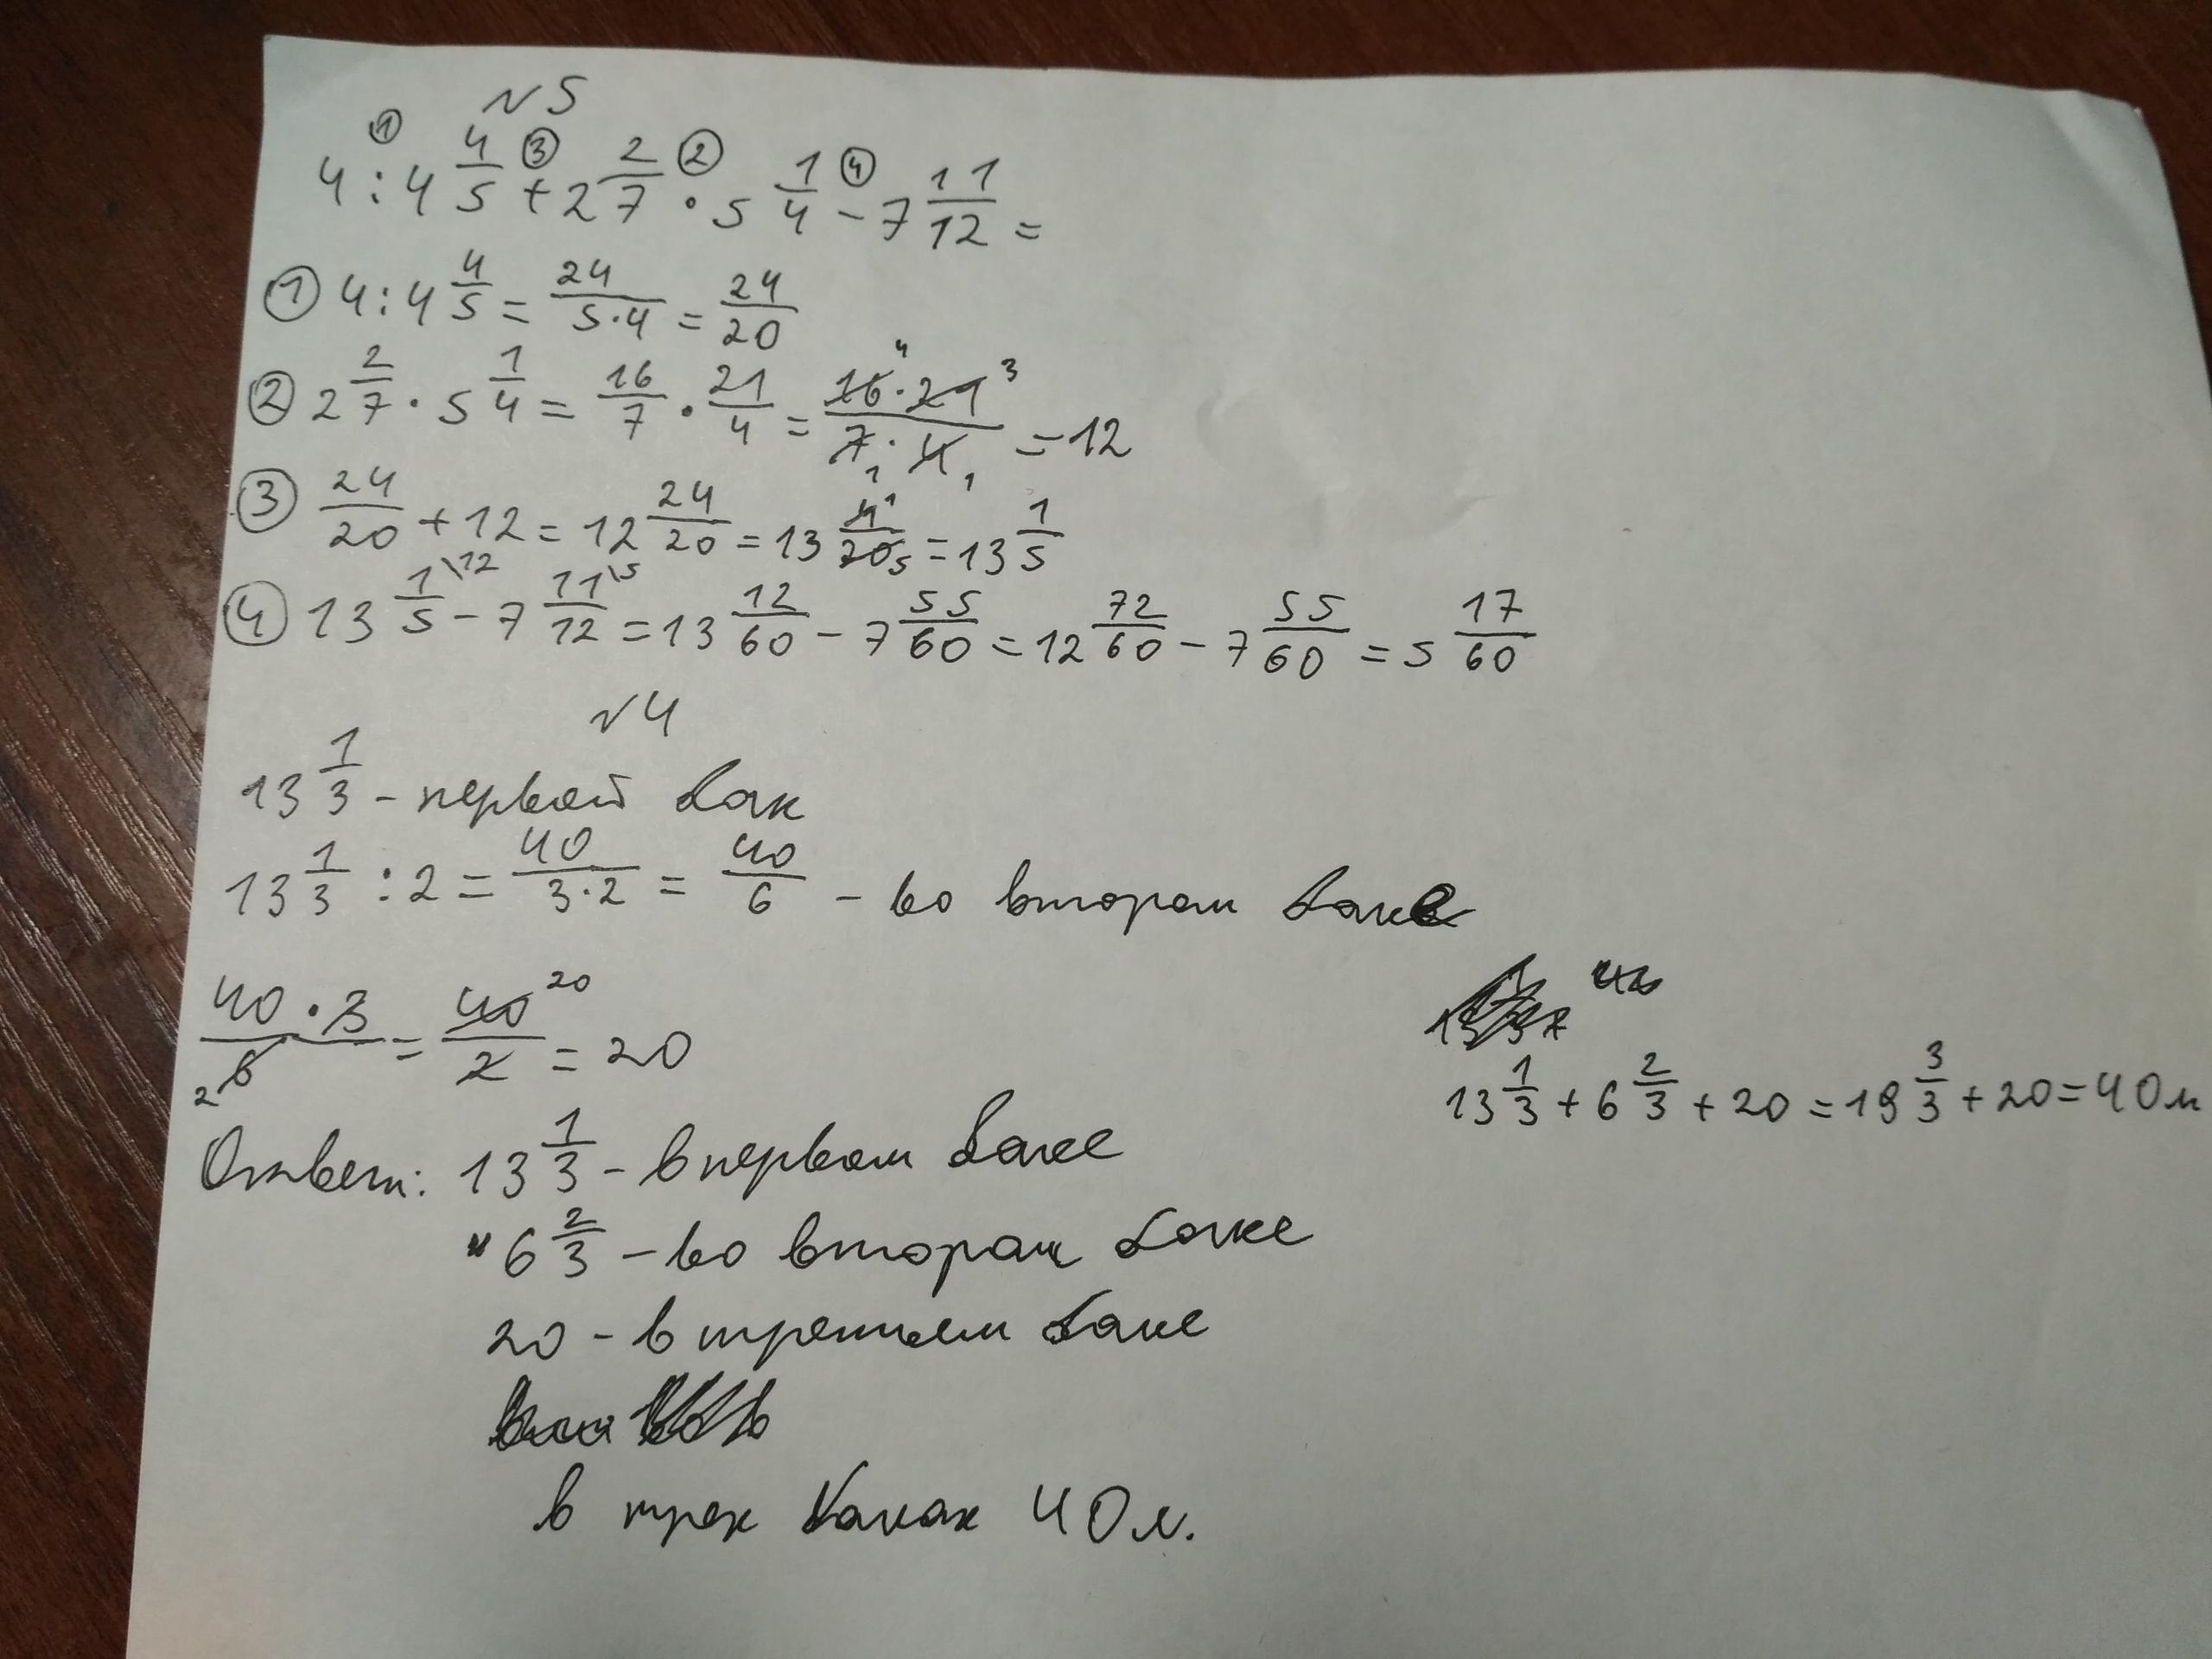 №5
4 : 4 4/5 + 2 2/7 · 5 1/4 − 7 11/12 =
① 4 : 4 4/5 = 24/(5·4) = 24/20
② 2 2/7 · 5 1/4 = 16/7 · 21/4 = (16·21)/(7·4) = 12
③ 24/20 + 12 = 12 24/20 = 13 4/20 = 13 1/5
④ 13 1/5 − 7 11/12 = 13 12/60 − 7 55/60 = 12 72/60 − 7 55/60 = 5 17/60
№4
13 1/3 - первый бак
13 1/3 : 2 = 40/(3·2) = 40/6 - во втором баке
(40·3)/6 = 40/2 = 20
13 1/3 + 6 2/3 + 20 = 19 3/3 + 20 = 40 л
Ответ: 13 1/3 - в первом баке
6 2/3 - во втором баке
20 - в третьем баке
в трех баках 40 л.